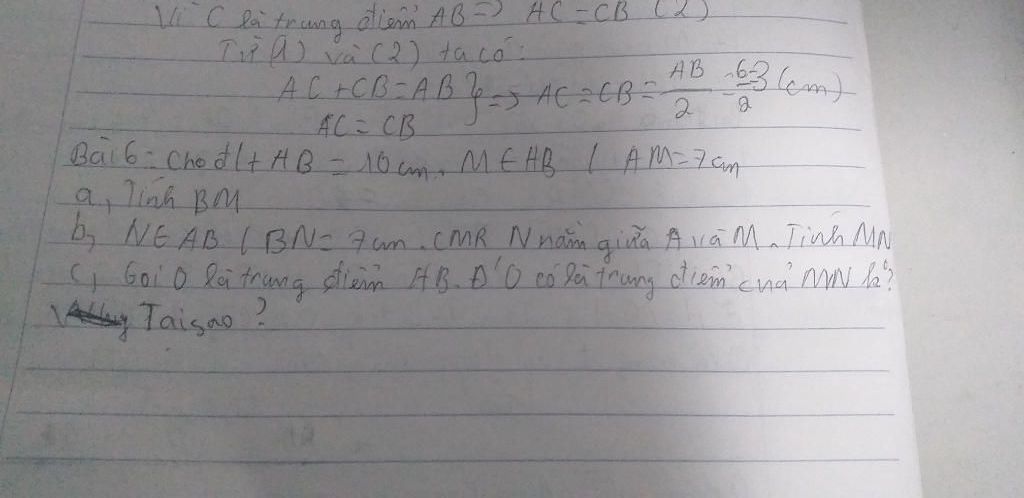 Vì C là trung điểm AB => AC = CB (2)
Từ (1) và (2) ta có:
AC + CB = AB } => AC = CB = AB/2 = 6/2 = 3 (cm)
AC = CB
Bài 6: Cho đt AB = 10 cm. M ∈ AB / AM = 7 cm
a, Tính BM
b, N ∈ AB / BN = 7 cm. CMR N nằm giữa A và M. Tính MN
c, Gọi O là trung điểm AB. Đ' O có là trung điểm của MN k?
Tại sao?